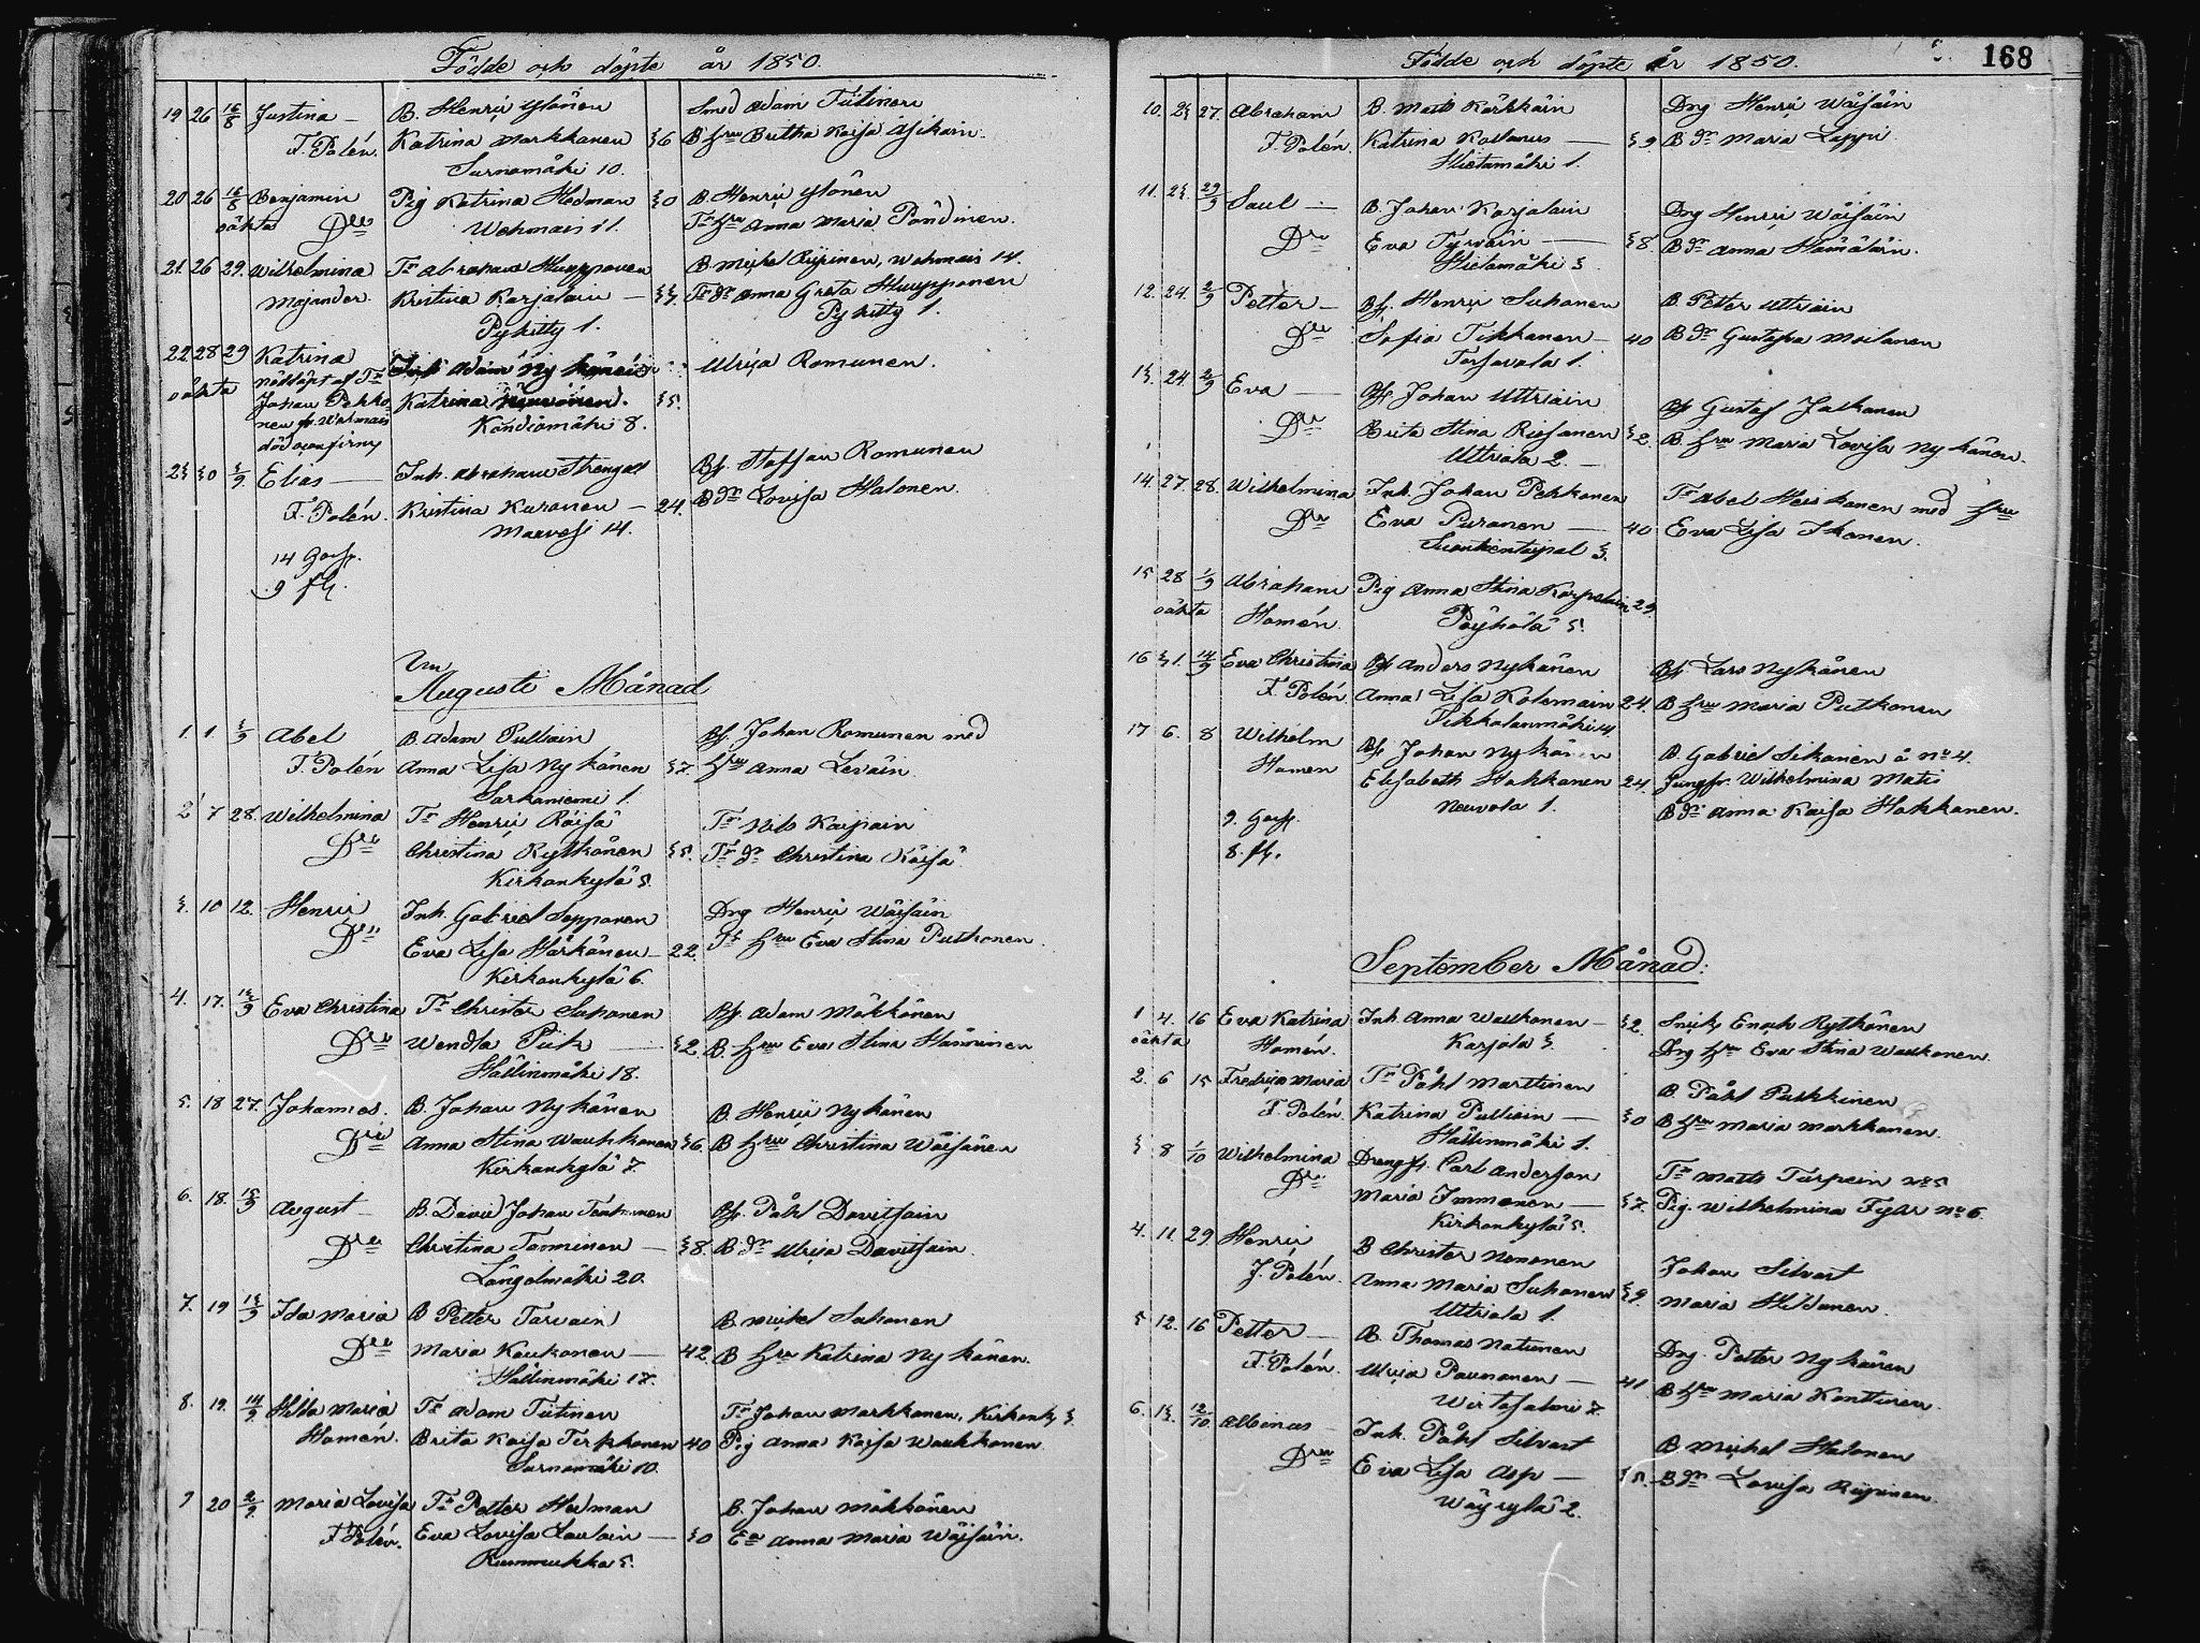 Födde och döpte år 1850.
19 26 16/8 Justina — B. Henric Ylönen Smed Adam Tiitinen
F. Polén. Katrina Markkanen 36 B hru Britha Kaisa Asikain.
Surnamäki 10.
20 26 16/8 Benjamin Pig Katrina Hedman 30 B. Henric Ylönen
oäkta D:o Wehmais 11. T:r hru Anna Maria Pöndinen.
21. 26 29. Wilhelmina T:r Abraham Huupponen B. Michel Riipinen, Wehmais 14.
Majander. Kristina Karjalain — 33. T:r d:r Anna Greta Huupponen
Pykitty 1. Pykitty 1.
22 28 29 Katrina Adam Nykänen Ulrica Romunen.
oäkta nöddöpt af T:r
Johan Pekko- Katrina 35.
nen fr. Wehmais Kondiamäki 8.
död
23 30 3/9. Elias — Inh. Abraham Strengell Bf. Staffan Romunen
F. Polén. Kristina Kuronen — 24. B d:r Lovisa Halonen.
Maavesi 14.
14 Goss.
9 fl.
Augusti Månad
1. 1. 3/9 Abel B. Adam Pulliain Bf. Johan Romunen med
F. Polén Anna Lisa Nykänen 37. hru Anna Leväin.
Sarkaniemi 1.
2 7 28. Wilhelmina T:r Henric Räisä T:r Nils Kaipain
D:o Christina Rytkönen 35. T:r d:r Christina Räisä
Kirkonkylä 5.
3. 10 12. Henric Inh. Gabriel Sepponen Dng Henric Wäisäin
D:o Eva Lisa Härkönen — 22. T:r hru Eva Stina Putkonen.
Kirkonkylä 6.
4. 17. 13/9 Eva Christina T:r Christer Sahonen Bf. Adam Mökkönen
D:o Wendla Piik — 32. B. hru Eva Stina Hänninen
Hällinmäki 18.
5. 18 27. Johannes. B. Johan Nykänen B. Henric Nykänen
D:o Anna Stina Wauhkonen 36. B hru Christina Wäisänen
Kirkonkylä 7.
6. 18. 15/9 August — B. David Johan Bf. Påhl Davitsain
D:o Christina Tamminen — 38. B d:r Ulrica Davitsain.
Längelmäki 20.
7. 19 13/9 Ida Maria B Petter Tarvain B. Michel Sahonen
D:o Maria Kaukonen — 42. B hru Katrina Nykänen.
Hällinmäki 17.
8. 19. 14/9 Hilda Maria T:r Adam Tiitinen T:r Johan Markkanen, Kirkonk. 3.
Homén. Brita Kaisa Tirkkonen 40 Pig Anna Kaisa Waukkonen.
Surnamäki 10.
9 20 2/9. Maria Lovisa T:r Petter Hedman B. Johan Mökkönen
F. Polén. Eva Lovisa Lautain — 30 E:a Anna Maria Wäisäin.
Rummukka 5.
Födde och döpte år 1850. 168
10. 23 27. Abraham B. Matts Karkkain Dng Henric Wäisäin
F. Polén. Katrina Kollanus — 39. B d:r Maria Lappi.
Hietamäki 1.
11. 23. 29/9 Saul — B. Johan Karjalain Dng Henric Wäisäin
D:o Eva Tyrväin — 38 B d:r Anna Hämäläin.
Hietamäki 3
12. 24. 2/9 Petter — Bf. Henric Suhonen B. Petter Uttriain
D:o Sofia Tikkanen — 40 B d:r Gustafva Moilanen
Torsavala 1.
13. 24. 2/9 Eva — Bf Johan Uttriain Bf Gustaf Jalkanen
D:o Brita Stina Riekanen 32. B. hru Maria Lovisa Nykänen.
Uttriala 2.
14. 27. 28. Wilhelmina Inh. Johan Pekkonen T:r Abel Heiskanen med hru
D:o Eva Puranen — 40 Eva Lisa Ikonen.
Suontientaipal 3.
15 28 1/9 Abraham Pig Anna Stina Karjalain 29.
oäkta Homén. Pöyhölä 5.
16 31. 14/9 Eva Christina Bf Anders Nykänen Bf. Lars Nykänen
F. Polén. Anna Lisa Kolemain 24. B hru Maria Putkonen
Pikkalanmäki 4.
17 6. 8 Wilhelm Bf Johan Nykänen B. Gabriel Sikanen å No 4.
Homen Elisabeth Hakkanen 24. Jungfr. Wilhelmina Mati
Neuvola 1. B d:r Anna Kaisa Hakkanen.
9. Goss.
8. fl.
September Månad.
1 4. 16 Eva Katrina Inh. Anna Waukonen — 32. Snick. Enoch Rytkönen
oäkta Homén. Karjola 3. Dng hru Eva Stina Waukonen.
2. 6 15 Fredrica Maria T:r Påhl Marttinen B. Påhl Puskkinen
F. Polén. Katrina Pulliain — 30 B hru Maria Markkanen.
Hällinmäki 1.
3 8 1/10 Wilhelmina Drengfr. Carl Anderson T:r Matts Turpein No 5
D:o Maria Immonen — 37. Pig. Wilhelmina No 6.
Kirkonkylä 5.
4. 11. 29. Henric B Christer Nenonen Johan Silvast
F. Polén. Anna Maria Suhonen 39. Maria Hildanen.
Uttriala 1.
5 12. 16 Petter — B. Thomas Natunen Dng. Petter Nykänen
F. Polén. Ulrica Paunonen — 41 B hru Maria Konttinen.
Wirtasalmi 7.
6. 13. 12/10. Albinus Inh. Påhl Silvast B. Michel Halonen
D:o Eva Lisa Asp — 35. B d:r Lovisa Riipinen.
Wäyrylä 2.